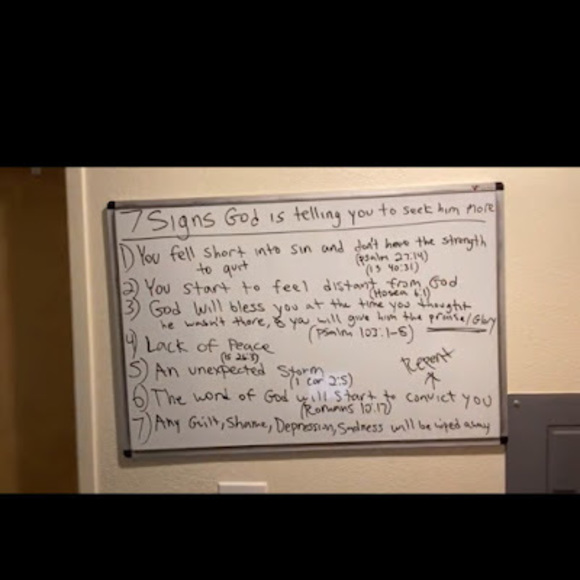 7 Signs God is telling you to seek him more
1) You fell short into sin and don't have the strength
to quit (psalm 27:14)
(is 40:31)
2) You start to feel distant from God
(Hosea 6:1)
3) God will bless you at the time you thought
he wasn't there, & you will give him the praise/Glory
(psalm 103:1-5)
4) Lack of Peace
(is 26:3)
5) An unexpected Storm
(1 cor 2:5)
Repent
6) The word of God will start to convict you
(Romans 10:17)
7) Any Guilt, Shame, Depression, Sadness will be wiped away